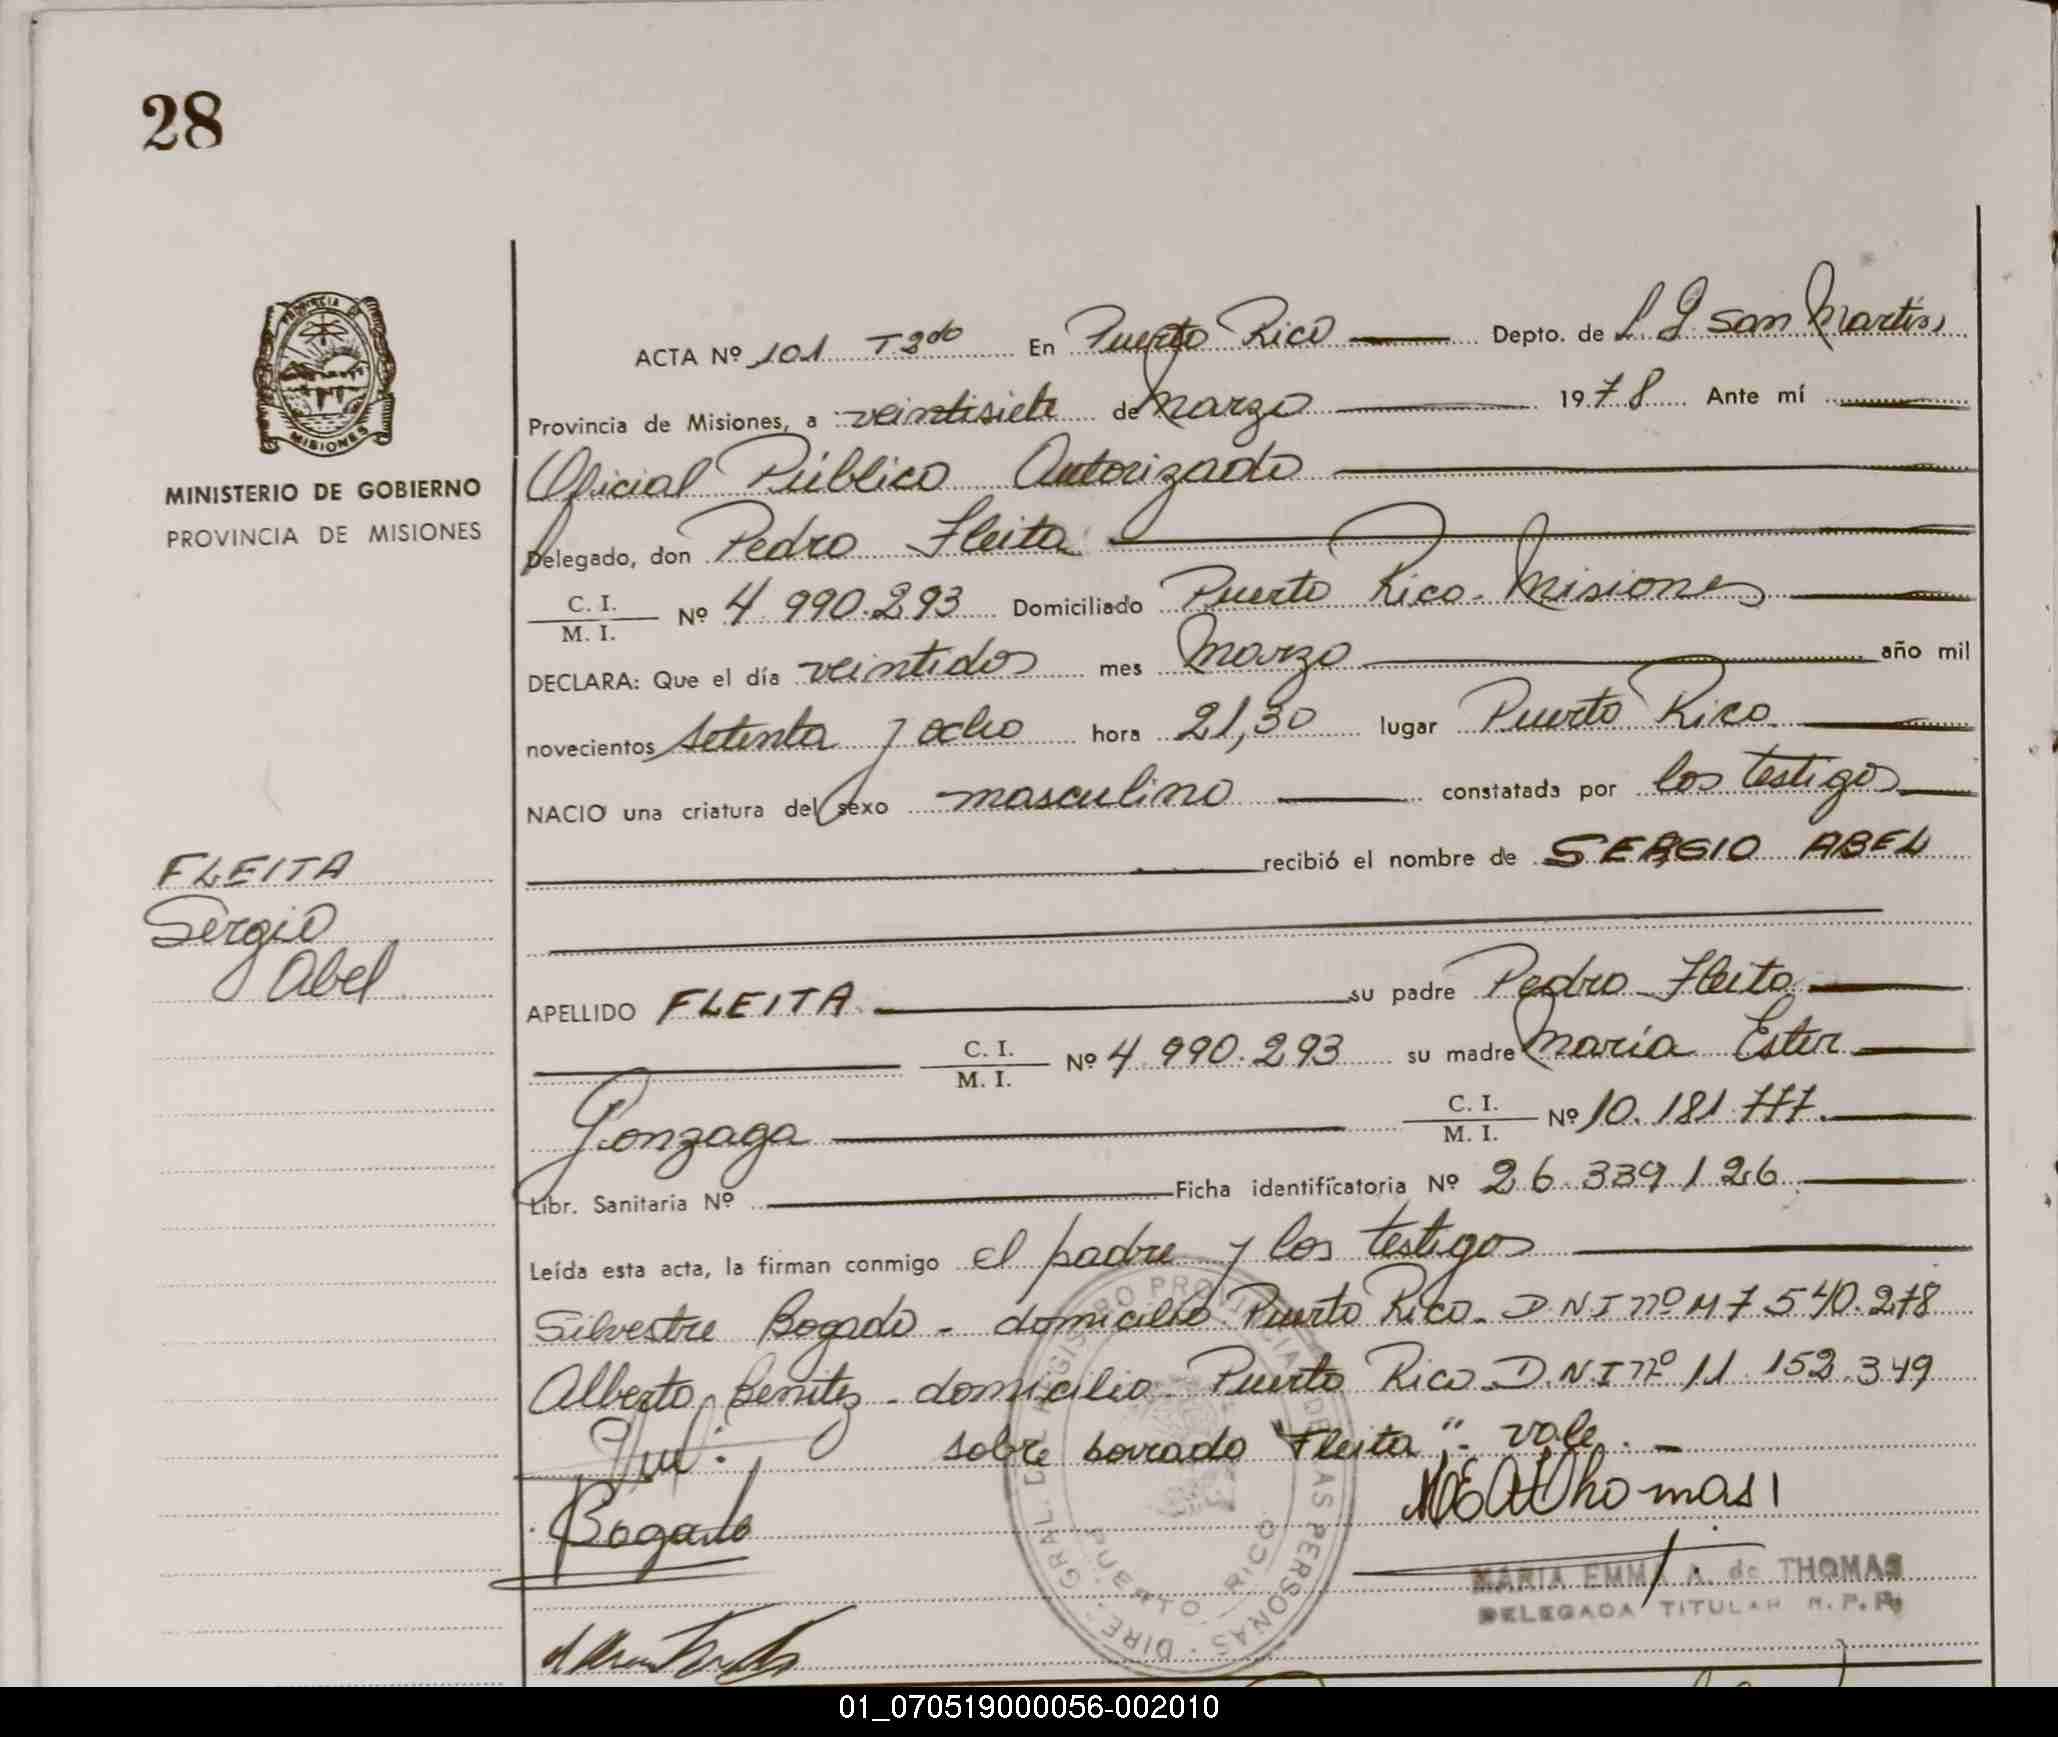 28
PROVINCIA DE
MISIONES
MINISTERIO DE GOBIERNO
PROVINCIA DE MISIONES
FLEITA
Sergio
Abel
ACTA Nº 101 T 2do En Puerto Rico Depto. de L. G. San Martín
Provincia de Misiones, a veintisiete de Marzo 1978 Ante mí
Oficial Público Autorizado
Delegado, don Pedro Fleita
C. I. / M. I. Nº 4 990.293 Domiciliado Puerto Rico. Misiones
DECLARA: Que el día veintidos mes Marzo año mil
novecientos setenta y ocho hora 21,30 lugar Puerto Rico
NACIO una criatura del sexo masculino constatada por los testigos
recibió el nombre de SERGIO ABEL
APELLIDO FLEITA su padre Pedro Fleita
C. I. / M. I. Nº 4 990.293 su madre María Ester
Gonzaga C. I. / M. I. Nº 10.181.777.
Libr. Sanitaria Nº Ficha identificatoria Nº 26.339.126
Leída esta acta, la firman conmigo el padre y los testigos
Silvestre Bogado - domicilio Puerto Rico. D N I nº M 7.540.278
Alberto Benitez - domicilio Puerto Rico. D.N.I nº 11.152.349
sobre borrado "Fleita". vale. -
Bogado
M E A Thomas
MARIA EMMA A. de THOMAS
DELEGADA TITULAR R. P. P.
DIRE. GRAL. DEL REGISTRO PROVINCIAL DE LAS PERSONAS
PUERTO RICO
01_070519000056-002010